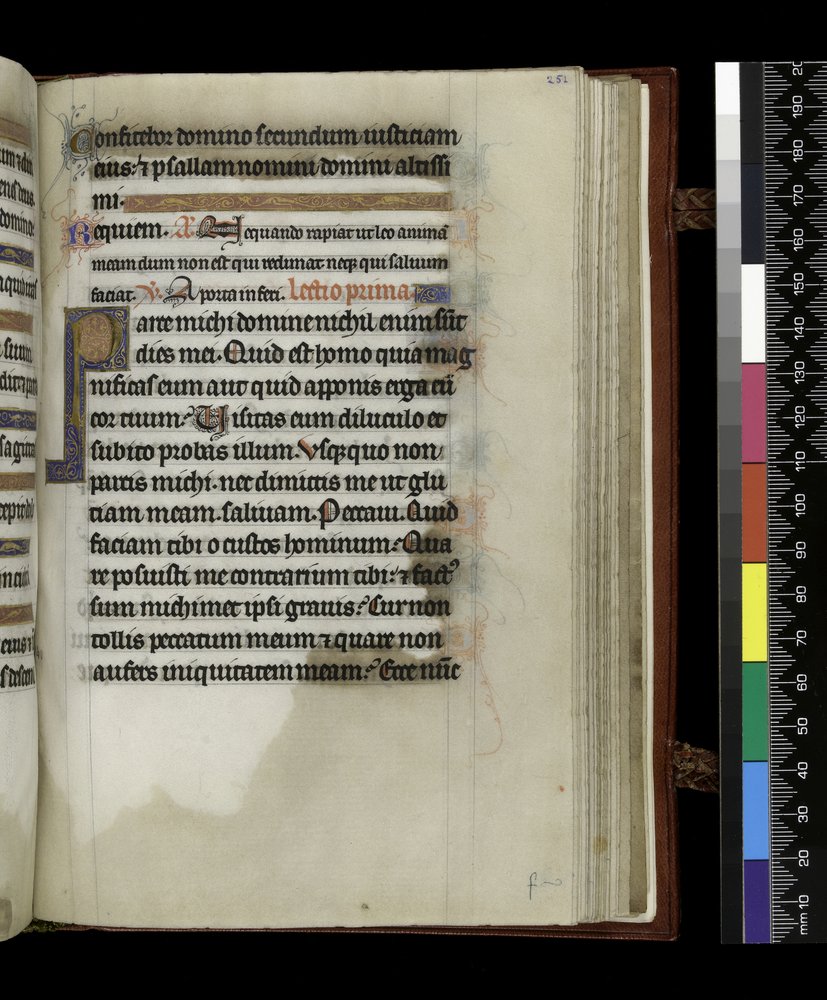 251
Confitebor domino secundum iusticiam
eius: ⁊ psallam nomini domini altissi
mi.
Requiem. A. Nequando rapiat ut leo animā
meam dum non est qui redimat neq; qui saluum
faciat. V. A porta inferi. lectio prima
Parce michi domine nichil enim sūt
dies mei. Quid est homo quia mag
nificas eum aut quid apponis erga eū
cor tuum? Uisitas eum diluculo et
subito probas illum. Vsq;quo non
parcis michi. nec dimittis me ut glu
ciam meam saliuam. Peccaui. Quid
faciam tibi o custos hominum? Qua
re posuisti me contrarium tibi: ⁊ factꝰ
sum michimet ipsi grauis? Cur non
tollis peccatum meum ⁊ quare non
aufers iniquitatem meam? Ecce nūc